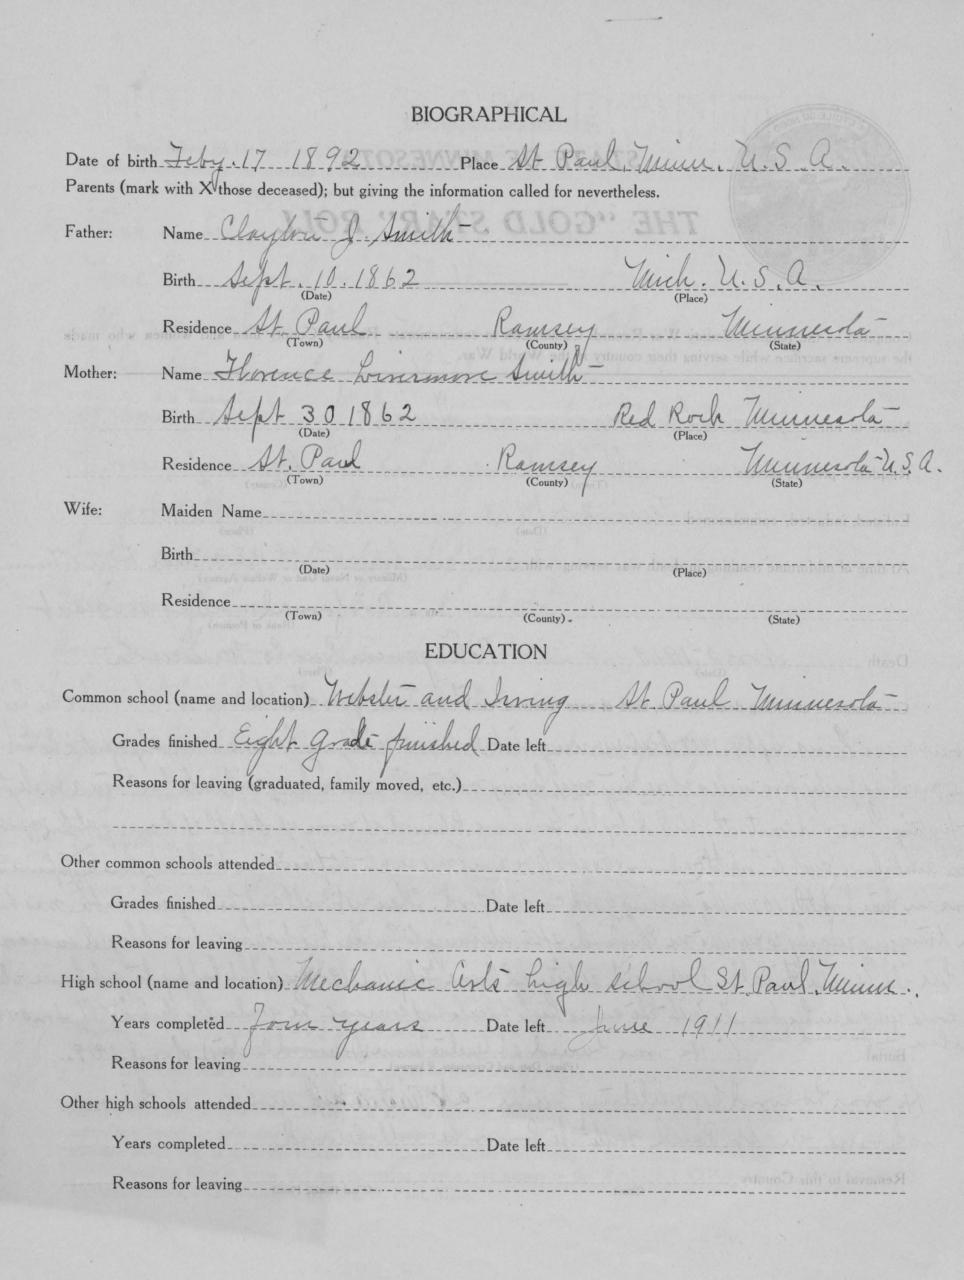 BIOGRAPHICAL
Date of birth Feby. 17 1892 Place St Paul, Minn. U.S.A.
Parents (mark with X those deceased); but giving the information called for nevertheless.
Father: Name Clayton J. Smith
Birth Sept. 10. 1862 Mich. U.S.A.
(Date) (Place)
Residence St. Paul Ramsey Minnesota
(Town) (County) (State)
Mother: Name Florence Livermore Smith
Birth Sept 30 1862 Red Rock Minnesota
(Date) (Place)
Residence St. Paul Ramsey Minnesota U.S.A.
(Town) (County) (State)
Wife: Maiden Name
Birth
(Date) (Place)
Residence
(Town) (County) (State)
EDUCATION
Common school (name and location) Webster and Irving St. Paul Minnesota
Grades finished Eight grade finished Date left
Reasons for leaving (graduated, family moved, etc.)
Other common schools attended
Grades finished Date left
Reasons for leaving
High school (name and location) Mechanic Arts high school St. Paul, Minn.
Years completed Four years Date left June 1911
Reasons for leaving
Other high schools attended
Years completed Date left
Reasons for leaving